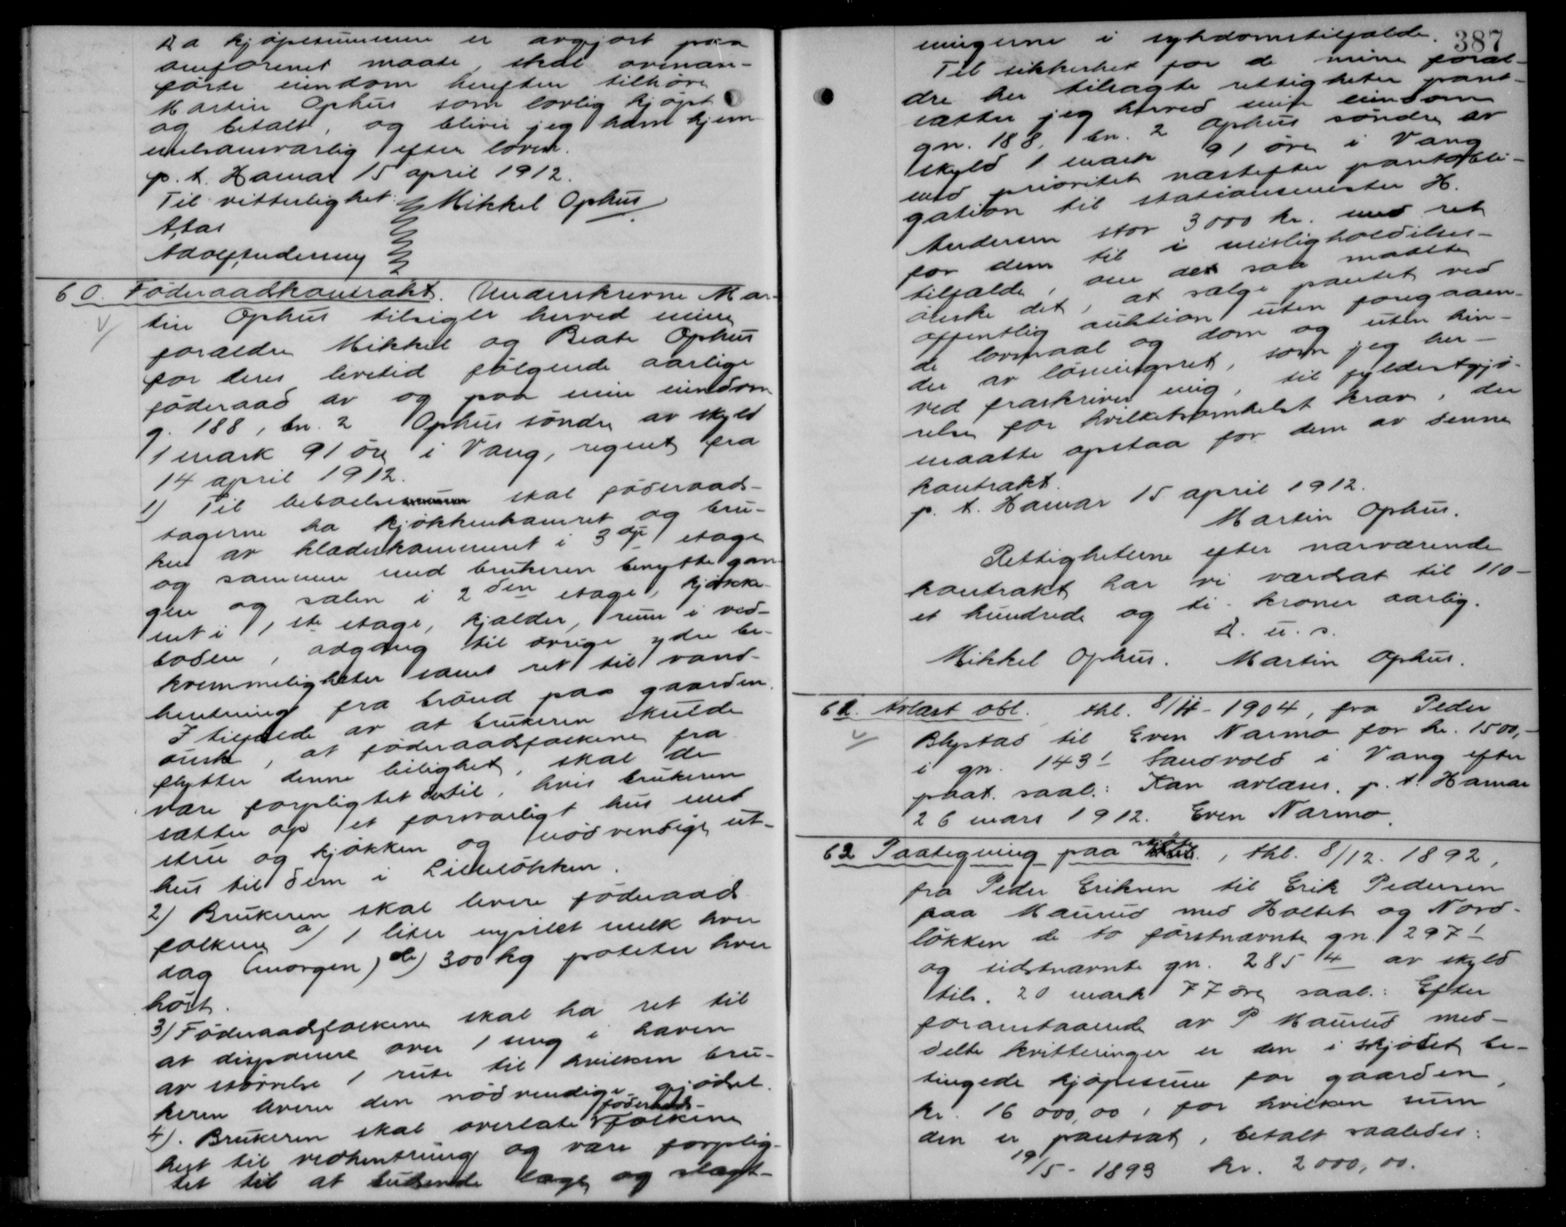 Da kjøpesummen er avgjort paa
omforenet maate, skal ovennæv-
førte eiendom herefter tilhøre
Martin Ophus som lovlig kjøpt
og betalt, og blive jeg ham hjem-
melsansvarlig efter loven.
p. t. Hamar 15 april 1912.
Til vitterlighet: Mikkel Ophus
Adolf Andersen
60. Föderaadkontrakt. Underskrevne Mar-
tin Ophus tilsiger herved mine
forældre Mikkel og Beate Ophus
for deres levetid følgende aarlige
föderaad av og paa min eiendom
g. 188, bn. 2 Ophus söndre av skyld
1 mark 91 öre i Vang, regnet fra
14 april 1912.
1) Til beboelse skal föderaads-
tagerne ha kjökkenkamret og bru-
ken av klædeskammeret i 3dje etage
og sammen med brukeren benytte gan-
gen og salen i 2den etage, kjøkke-
net i 1ste etage, kjælder, rum i ved-
boden, adgang til övrige ydre be-
kvemmeligheter samt ret til vand-
hentning fra brönd paa gaarden.
I tilfælde av at brukeren skulde
önske, at föderaadsfolkene fra-
flytter denne leilighet, skal de
være forpligtet dertil, hvis brukeren
sætter op et forsvarligt hus med
stue og kjøkken og nödvendige ut-
hus til dem i Lillelökken.
2) Brukeren skal levere föderaads
folkene a) 1 liter nysilet melk hver
dag (morgen) b) 300 kg poteter hver
höst.
3) Föderaadsfolkene skal ha ret til
at disponere over 1 seng i haven
av størrelse 1 rute til hvilken bru-
keren leverer den nödvendige gjödsel.
4). Brukeren skal overlate föderaads-folkene
hest til vedhentning og være forplig-
tet til at tilsende læge og slægt-
387
ningerne i sykdomstilfælde.
Til sikkerhet for de mine foræl-
dre her tilsagte rettigheter pant-
sætter jeg herved min eiendom
gn. 188, bn. 2 Ophus söndre av
skyld 1 mark 91 öre i Vang
med prioritet næstefter pantobli-
gation til stationsmester H.
Andersen stor 3000 kr. med ret
for dem til i misligholdelses-
tilfælde, om de saa maatte
önske det, at sælge pantet ved
offentlig auktion uten foregaaen-
de lovmaal og dom og uten hin-
der av lösningsret, som jeg her-
ved fraskriver mig, til fyldestgjö-
relse for hvilketsomhelst krav, der
maatte opstaa for dem av denne
kontrakt.
p. t. Hamar 15 april 1912.
Martin Ophus.
Rettigheterne efter nærværende
kontrakt har vi værdsat til 110-
et hundrede og ti - kroner aarlig.
D. u. s.
Mikkel Ophus. Martin Ophus.
61. Avlæst obl. thl. 8/11- 1904, fra Peder
Blystad til Even Narmo for kr. 1500,-
i gn. 143¹ Sandvold i Vang efter
paat. saal.: Kan avlæses. p. t. Hamar
26 mars 1912. Even Narmo.
62 Paategning paa skjöte, thl. 8/12. 1892,
fra Peder Eriksen til Erik Pedersen
paa Maurud med Holtet og Nord-
løkken de to förstnævnte gn. 297¹
og sidstnævnte gn. 285⁴ av skyld
tils. 20 mark 77 öre saal.: Efter
foranstaaende av P Maurud med-
delte kvitteringer er den i skjötet be-
tingede kjøpesum for gaarden,
kr. 16 000,00, for hvilken sum
den er pantsat, betalt saaledes:
19/5 - 1893 kr. 2 000,00.